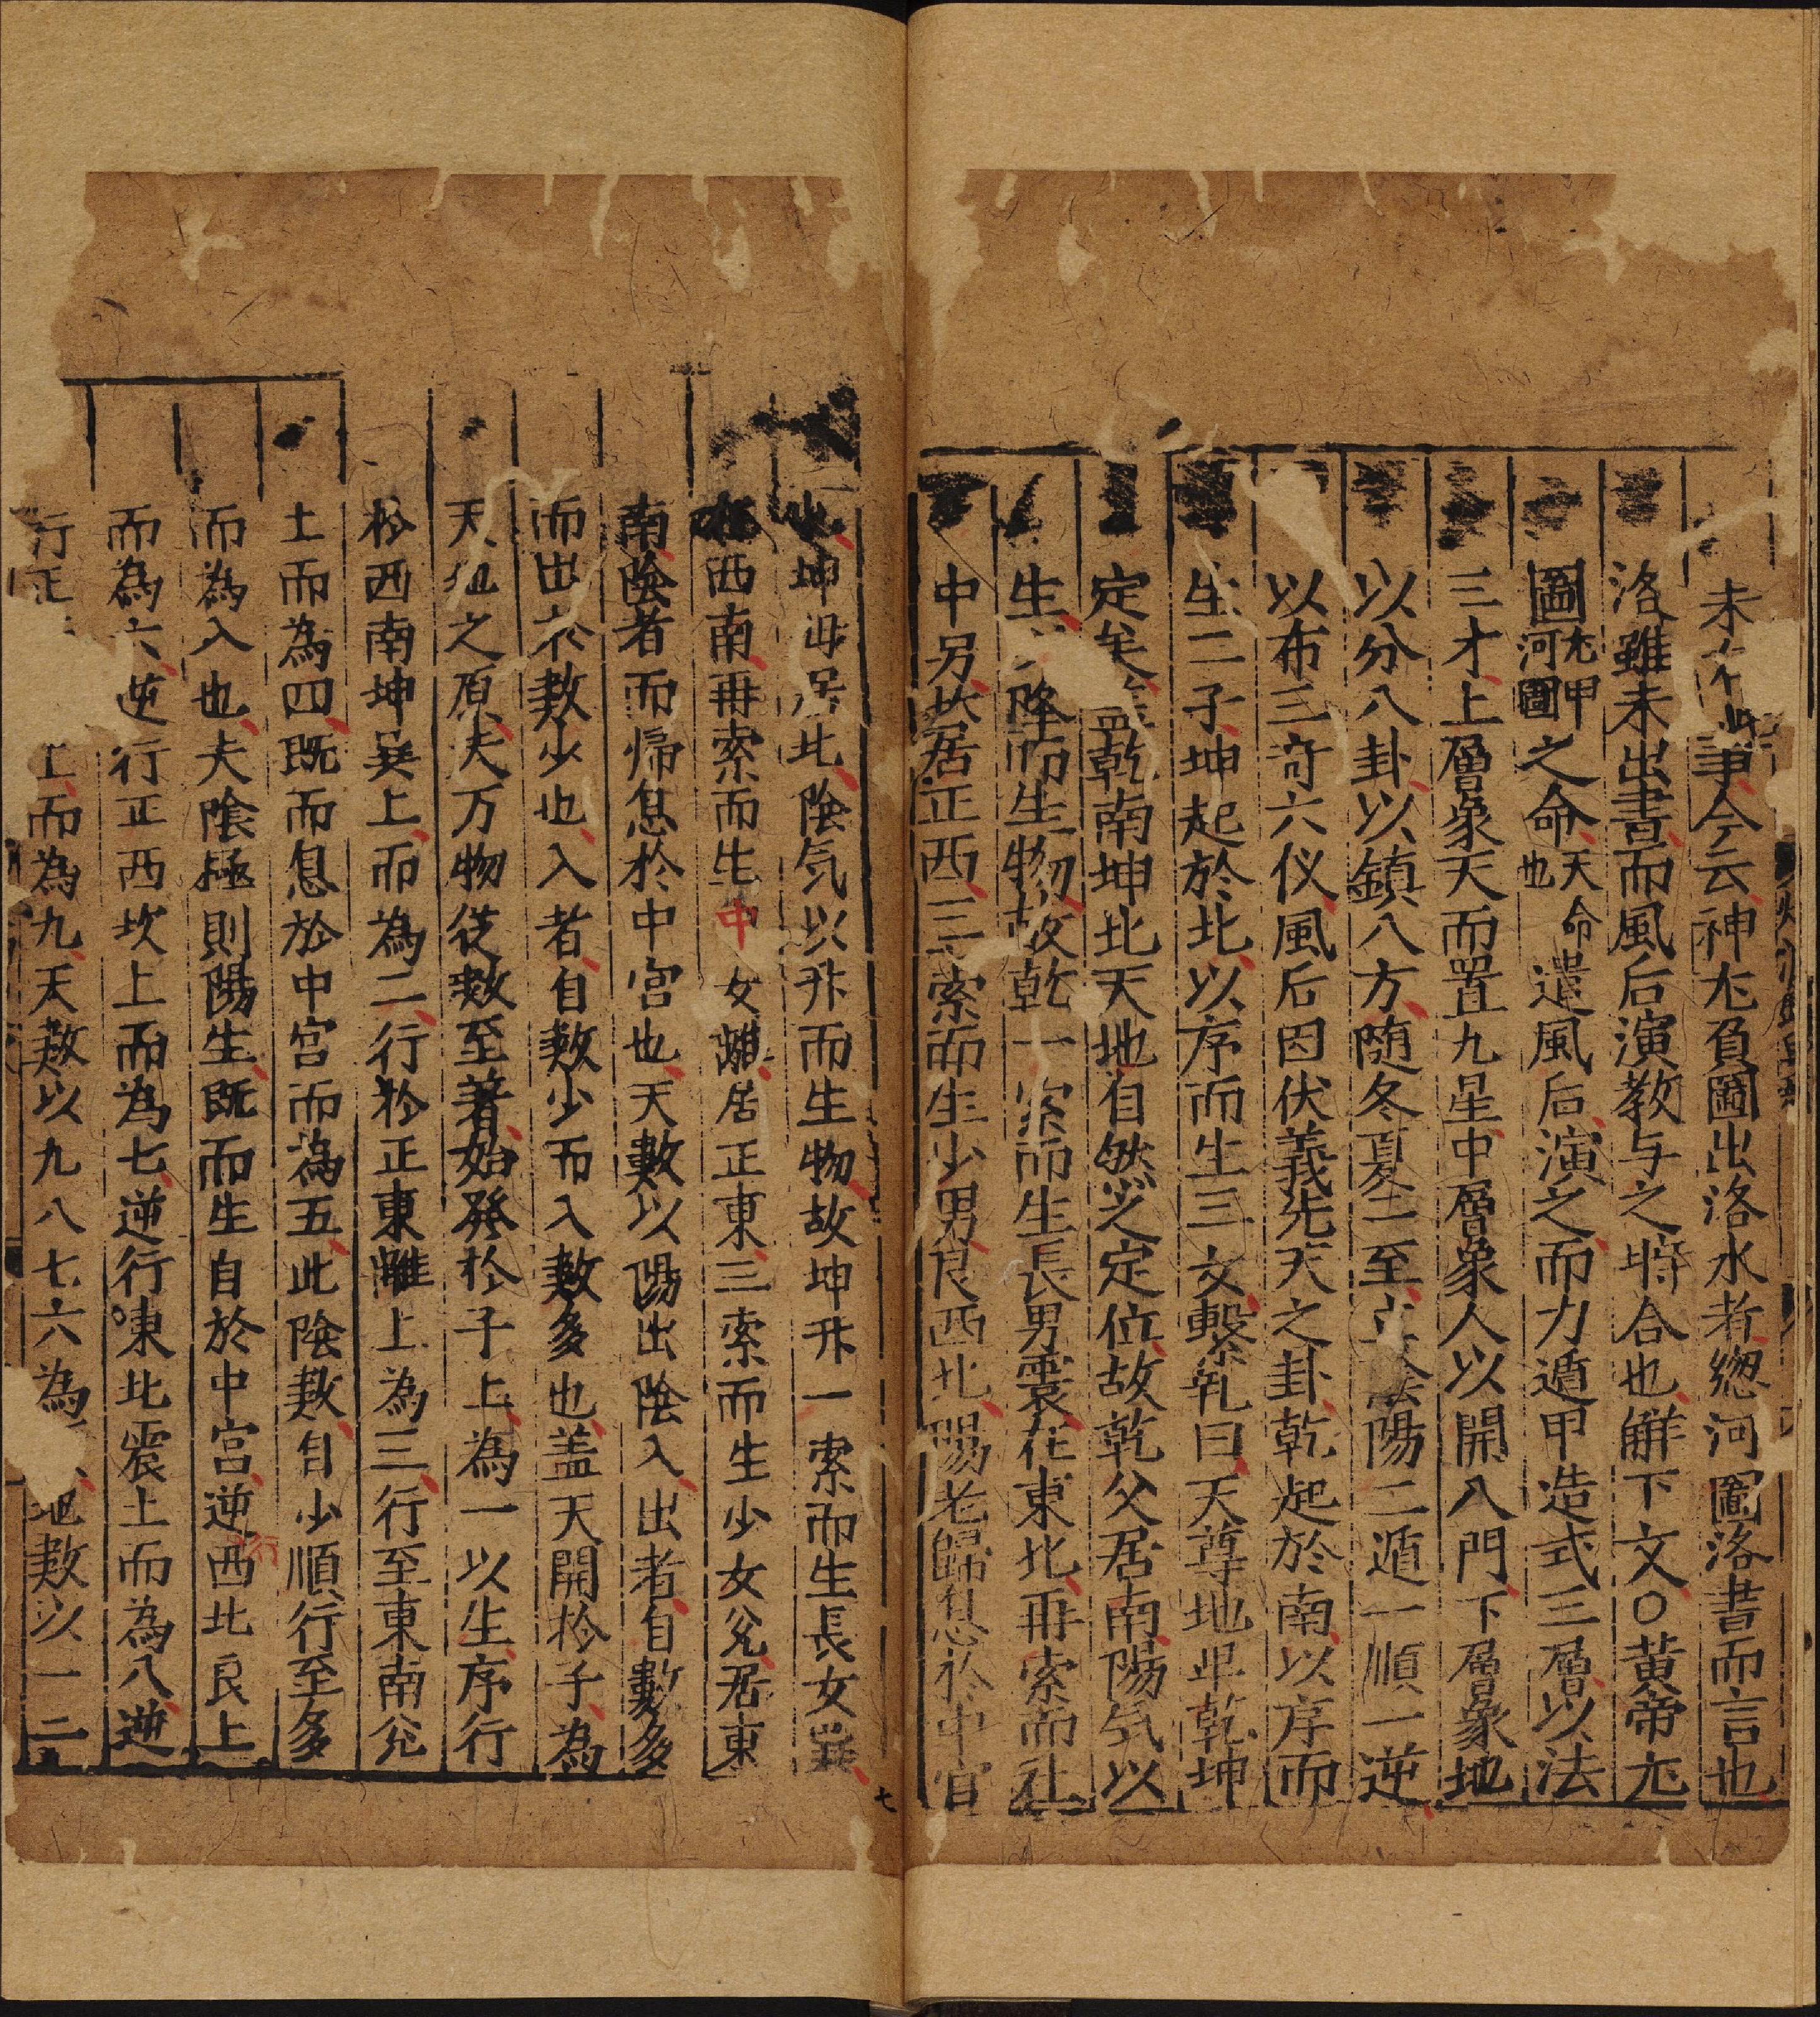 未有此事今云神尣負圖出洛水者緫河圖洛書而言也
洛雖未出書而風后演教与之暗合也觧下文○黄帝尣
圖尣甲河圖之命天命也遣風后演之而力遁甲造式三層以法
三才上層象天而置九星中層象人以開八門下層象地
以分八卦以鎮八方随冬夏二至立陰陽二遁一順一逆
以布三奇六仪風后因伏義先天之卦乾起於南以序而
生二子坤起於北以序而生三女繫乳曰天尊地卑乾坤
定矣盖乾南坤北天地自然之定位故乾父居南陽気以
生降而生物故乾一索而生長男震在東北再索而社
中另坎居正西三索而生少男艮西北陽老歸息於中官
坤母居北陰気以升而生物故坤升一索而生長女巽
在西南再索而生中女離居正東三索而生少女兊居東
南陰者而帰息於中宮也天數以陽出陰入出者自數多
而出於数少也入者自数少而入数多也盖天開於子為
天地之原夫万物従数至著始發於子上為一以生序行
於西南坤巽上而為二行於正東離上為三行至東南兊
土而為四既而息於中宮而為五此陰数自少順行至多
而為入也夫陰極則陽生既而生自於中宮逆行西北艮上
而為六逆行正西坎上而為七逆行東北震土而為八逆
行正上而為九天数以九八七六為地数以一二
七